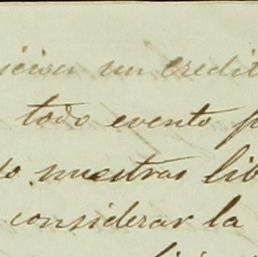 icion un credit
todo evento p
o nuestras lib
considerar la